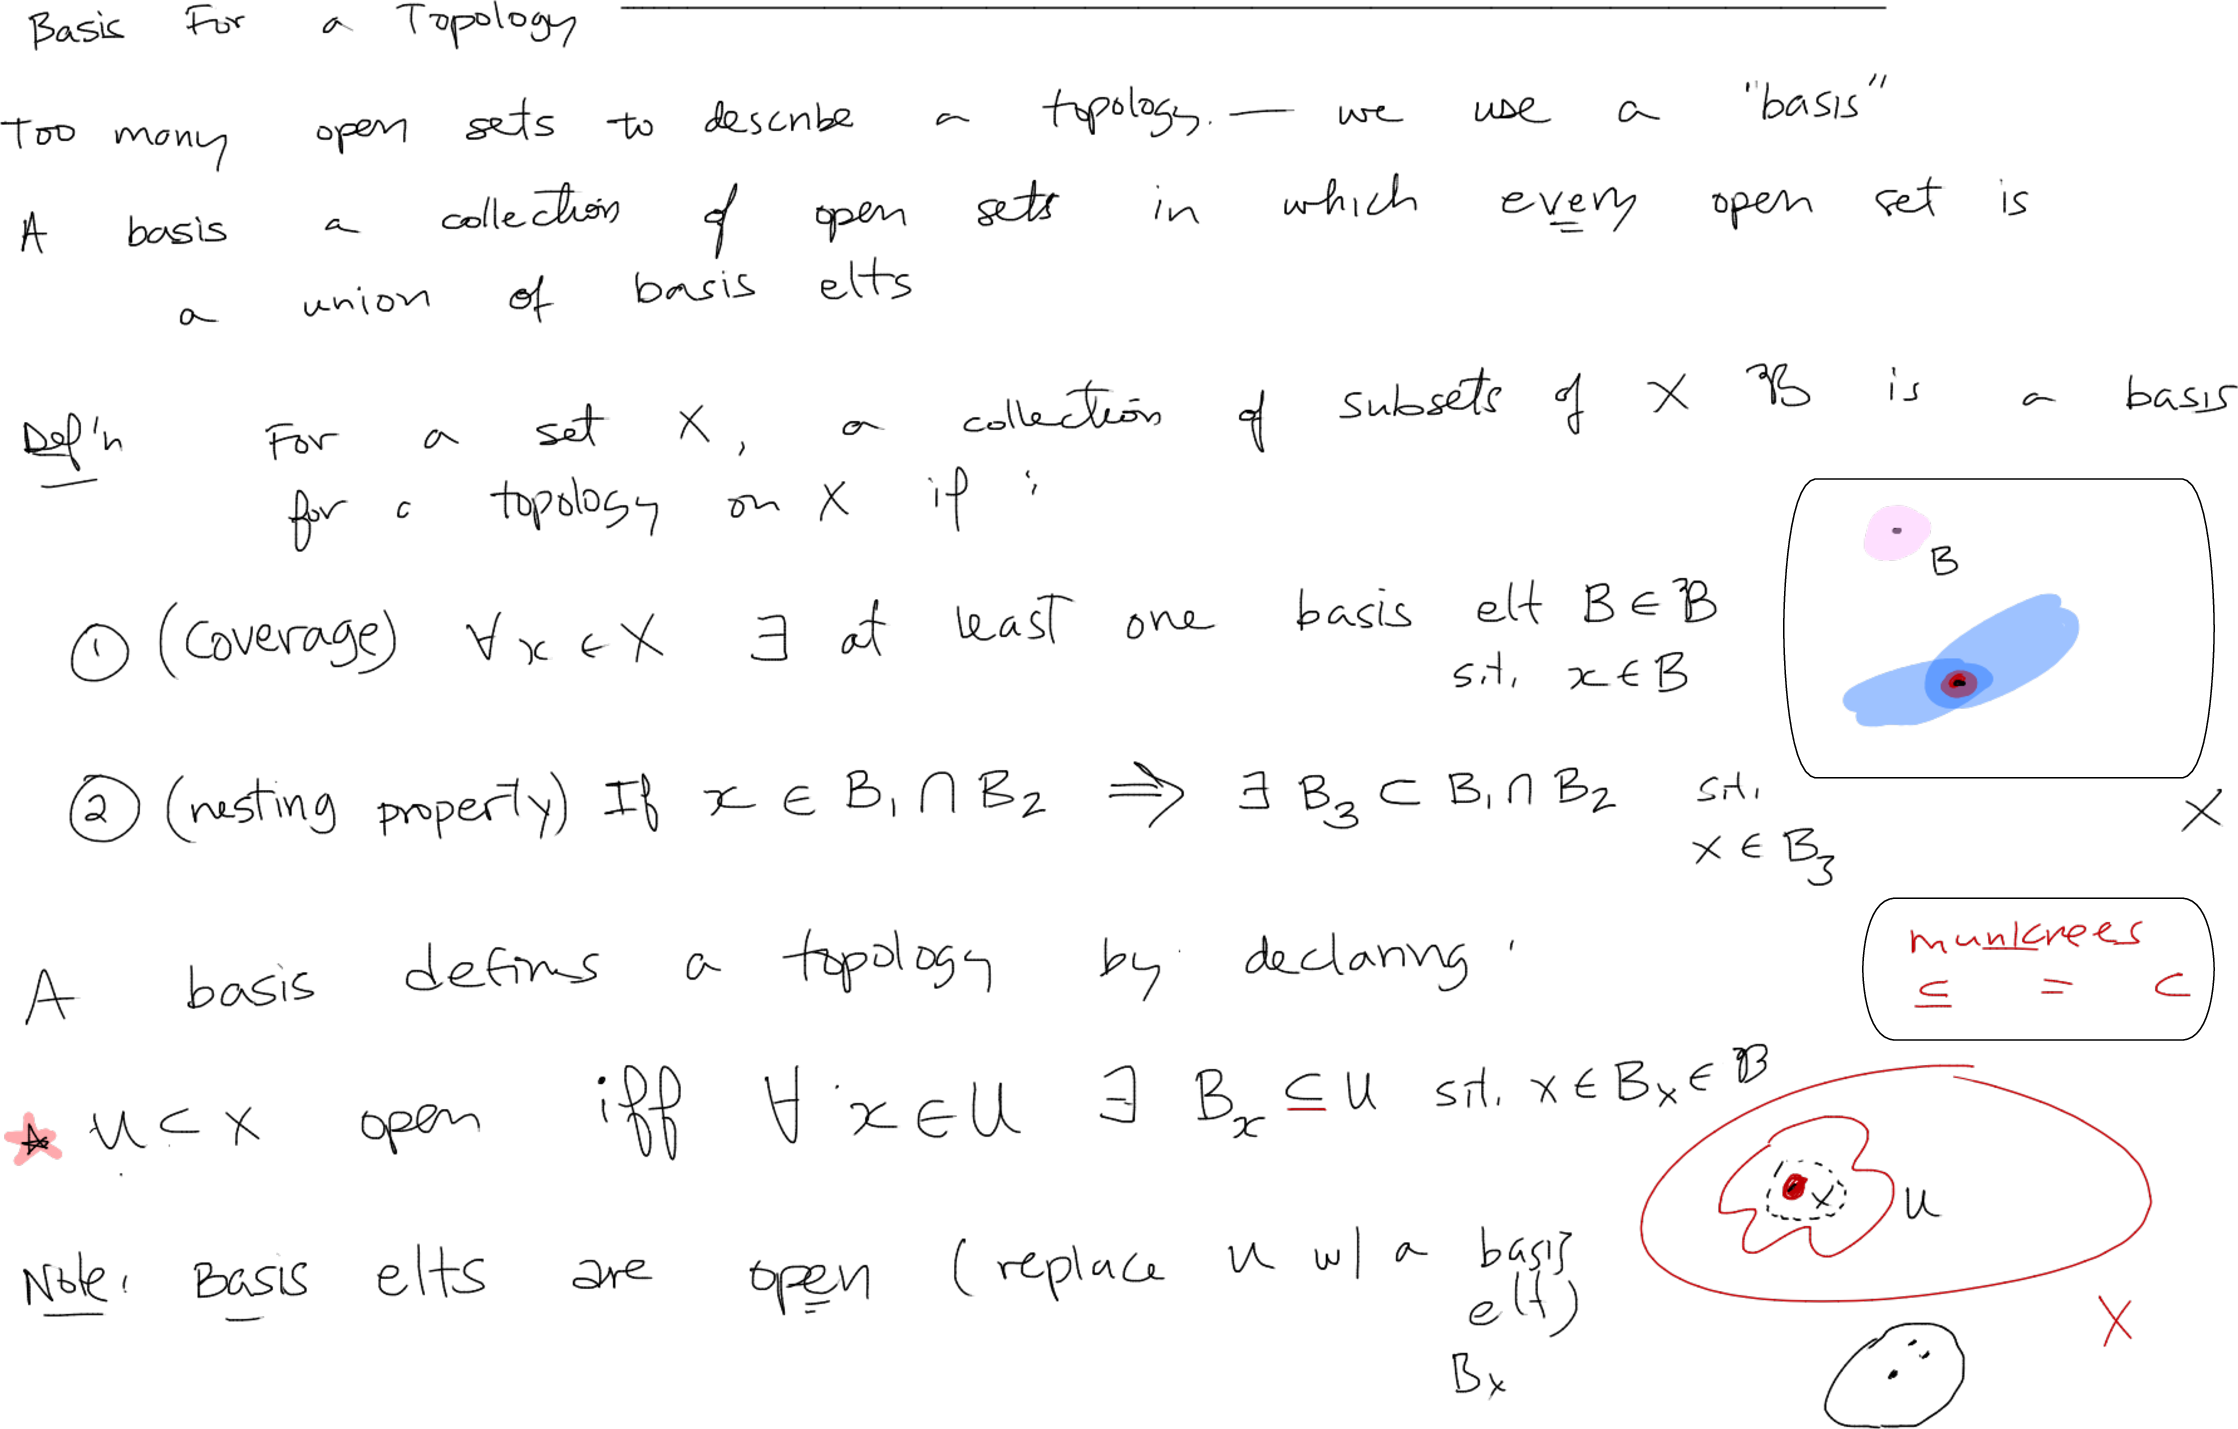 Basis For a Topology
Too many open sets to describe a topology. — we use a "basis"
A basis a collection of open sets in which every open set is
a union of basis elts
Def'n For a set X, a collection of subsets of X ℬ is a basis
for a topology on X if :
① (Coverage) ∀ x ∈ X ∃ at least one basis elt B ∈ ℬ
s.t. x ∈ B
B
② (nesting property) If x ∈ B₁ ∩ B₂ ⟹ ∃ B₃ ⊂ B₁ ∩ B₂ s.t.
x ∈ B₃
X
A basis defines a topology by declaring :
munkrees
⊆ = ⊂
★ U ⊂ X open iff ∀ x ∈ U ∃ Bₓ ⊆ U s.t. x ∈ Bₓ ∈ ℬ
x U
X
Note: Basis elts are open (replace U w/ a basis
elt)
Bₓ